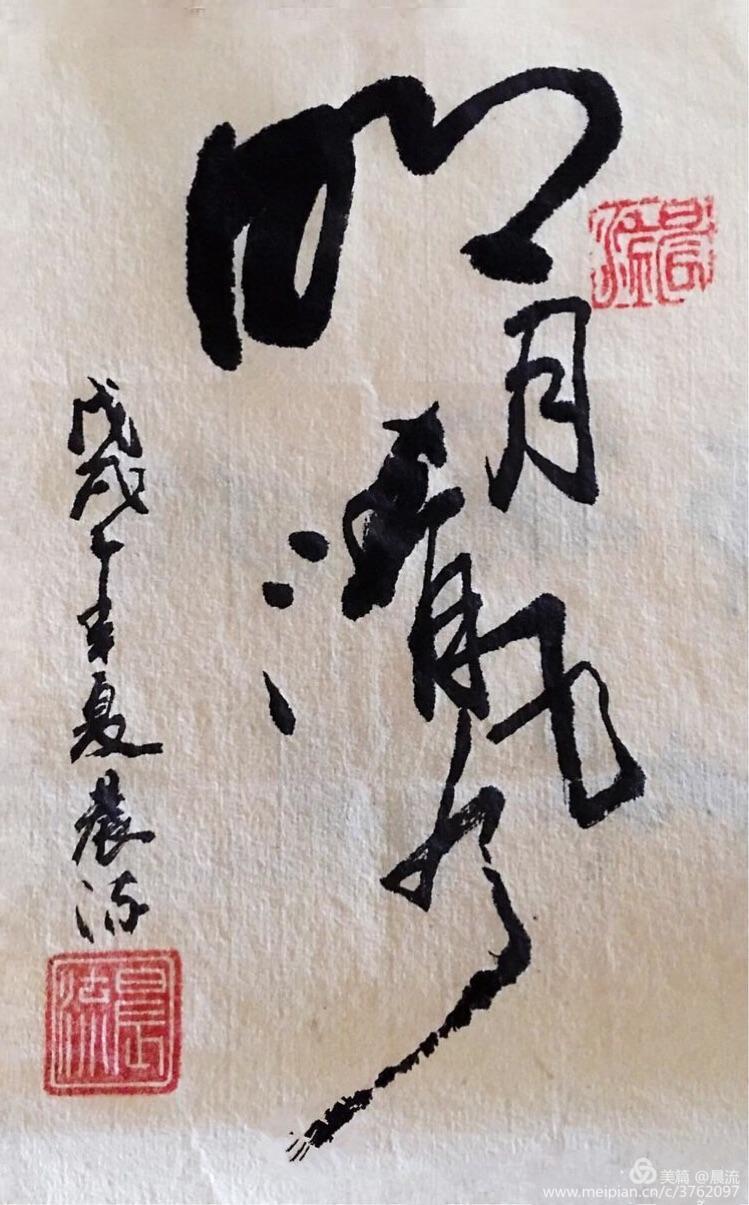 明月清风
戊戌年夏晨流
晨流
晨流
美篇 @晨流
www.meipian.cn/c/3762097